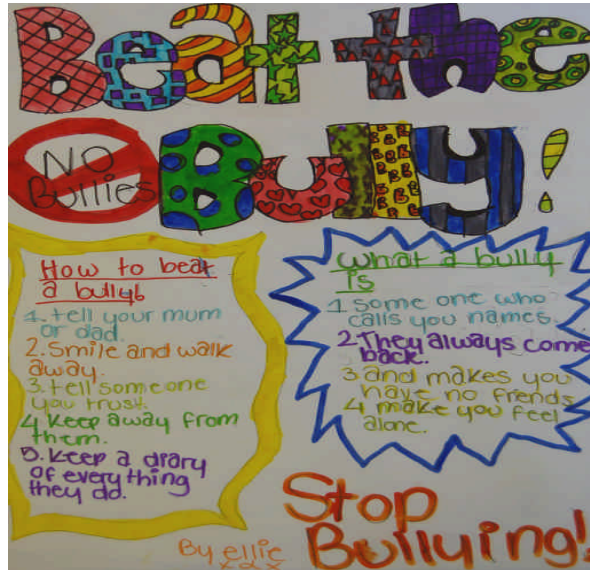 Beat the
NO
Bullies
Bully!
How to beat
a bully!
1. tell your mum
or dad.
2. Smile and walk
away.
3. tell someone
you trust.
4. Keep away from
them.
5. Keep a diary
of everything
they do.
what a bully
is
1 some one who
calls you names.
2. They always come
back.
3 and makes you
have no frends
4 make you feel
alone.
Stop
Bullying!
By ellie
x x x